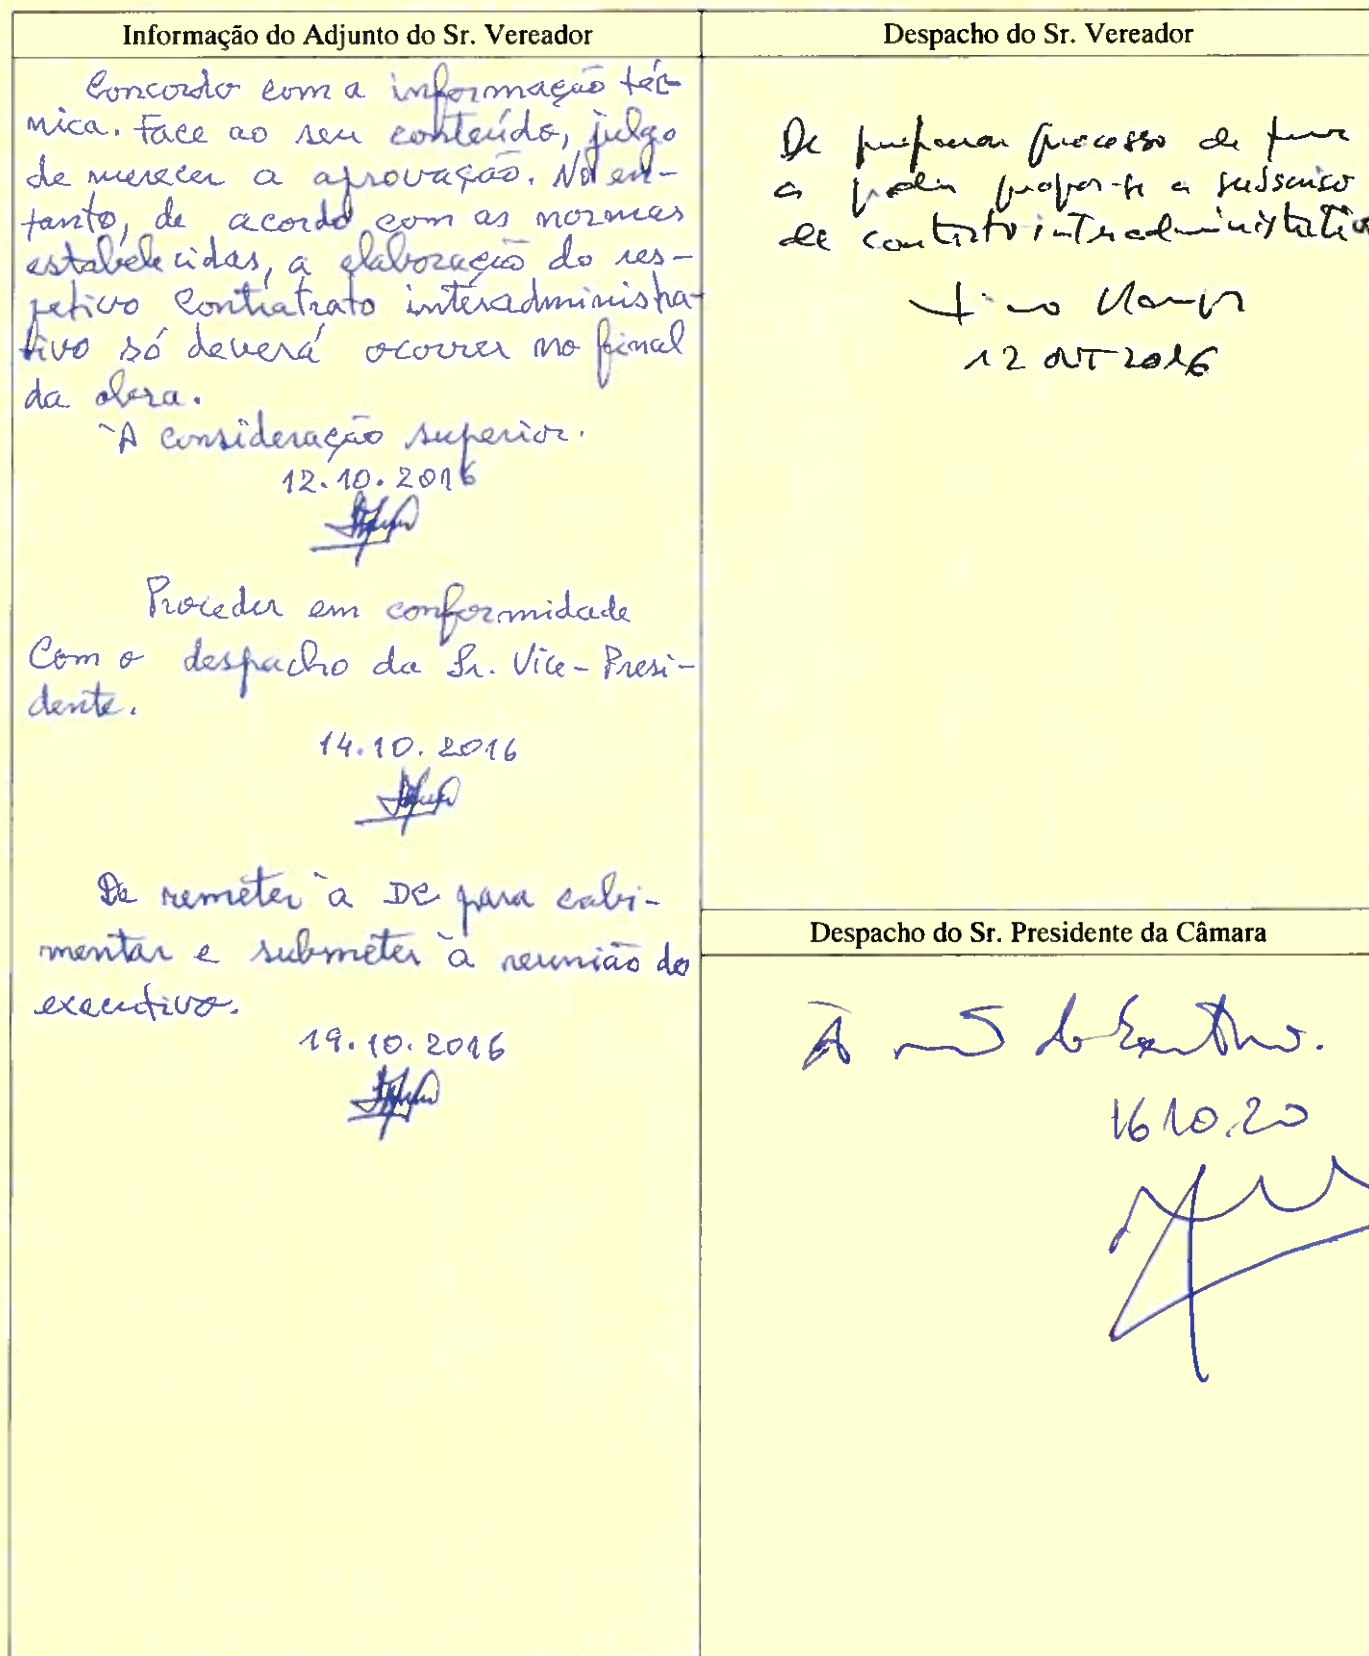 Informação do Adjunto do Sr. Vereador
Concordo com a informação téc-
nica. Face ao seu conteúdo, julgo
de merecer a aprovação. No en-
tanto, de acordo com as normas
estabelecidas, a elaboração do res-
petivo Contratrato interadministra-
tivo só deverá ocorrer no final
da obra.
À consideração superior.
12.10.2016
Proceder em conformidade
Com o despacho da Sr. Vice-Presi-
dente.
14.10.2016
De remeter à DC para cabi-
mentar e submeter à reunião do
executivo.
19.10.2016
Despacho do Sr. Vereador
De preparar processo de
a poder propor-se a
de contrato interadministrativo
12 OUT 2016
Despacho do Sr. Presidente da Câmara
À
16 10.20